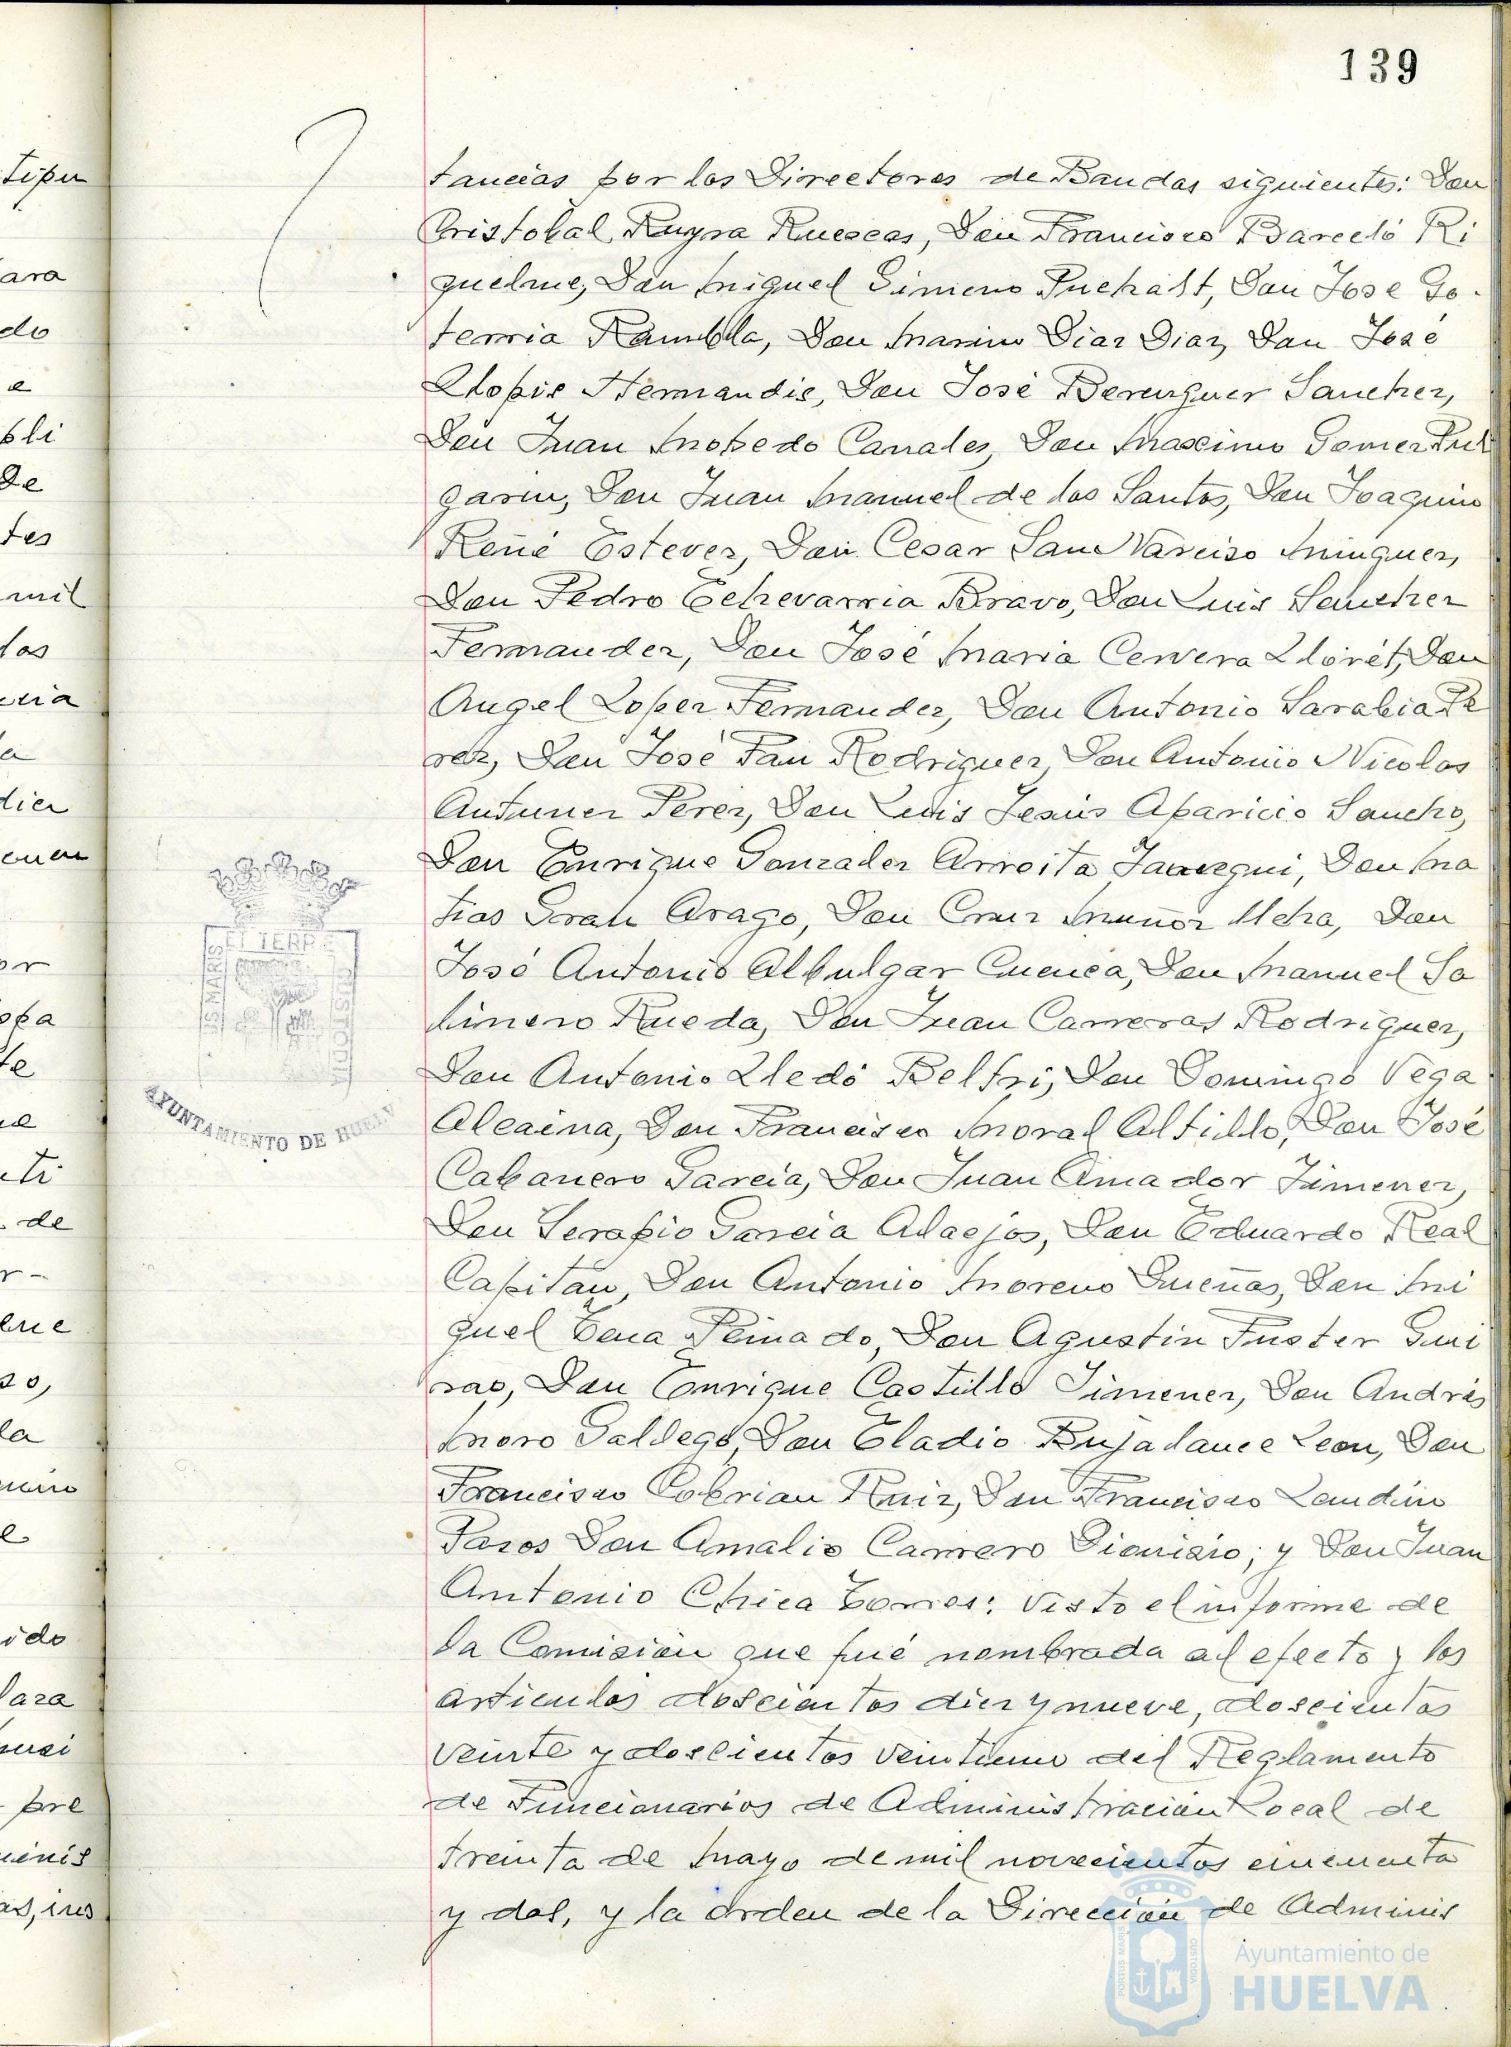 139
tancias por los Directores de Bandas siguientes: Don
Cristobal Ruyra Ruescas, Don Francisco Barceló Ri
quelme, Don Miguel Gimeno Puchalt, Don Jose Go-
terria Rambla, Don Marino Diaz Diaz, Don José
Llopis Hernandis, Don José Berenguer Sanchez,
Don Juan Mobedo Canales, Don Maximo Gomez Pul
garin, Don Juan Manuel de los Santos, Don Joaquin
Reñé Estevez, Don Cesar San Narciso Minguez,
Don Pedro Echevarria Bravo, Don Luis Sanchez
Fernandez, Don José Maria Cervera Llorét, Don
Angel Lopez Fernandez, Don Antonio Sarabia Pe
rez, Don José Fau Rodriguez, Don Antonio Nicolas
Antunez Perez, Don Luis Jesús Aparicio Sancho,
Don Enrique Gonzalez Arroita Jauregui, Don Ma
tias Arago, Don Cruz Muñoz Ucha, Don
José Antonio Albulgar Cuenca, Don Manuel Sa
linero Rueda, Don Juan Carreras Rodriguez,
Don Antonio Lledó Beltri, Don Domingo Vega
Alcaina, Don Francisco Moral Altillo, Don José
Cabanero Garcia, Don Juan Amador Jimenez,
Don Serapio Garcia Alaejos, Don Eduardo Real
Capitán, Don Antonio Moreno Dueñas, Don Mi
guel Tena Peinado, Don Agustin Fuster Gui
rao, Don Enrique Castillo Jimenez, Don Andrés
Moro Gallego, Don Eladio Bujalance Leon, Don
Francisco Cobrian Ruiz, Don Francisco Landin
Pazos Don Amalio Carrero Dionisio; y Don Juan
Antonio Chica Torres: Visto el informe de
la Comisión que fué nombrada al efecto y los
articulos doscientos diez y nueve, doscientos
veinte y doscientos veintiuno del Reglamento
de Funcionarios de Administracion Local de
treinta de Mayo de mil novecientos cincuenta
y dos, y la orden de la Dirección de Adminis
tipu
ara
do
e
bli
de
tes
mil
los
a
or
te
de
r-
la
e
ido
pre
AYUNTAMIENTO DE HUELV
PORTUS MARIS
CUSTODIA
Ayuntamiento de
HUELVA